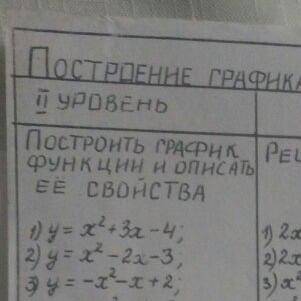 ПОСТРОЕНИЕ ГРАФИКА
II УРОВЕНЬ
ПОСТРОИТЬ ГРАФИК
ФУНКЦИИ И ОПИСАТЬ
ЕЁ СВОЙСТВА
1) y = x²+3x-4;
2) y = x²-2x-3;
3) y = -x²-x+2;
РЕШ
1) 2x
2) 2x
3) x²